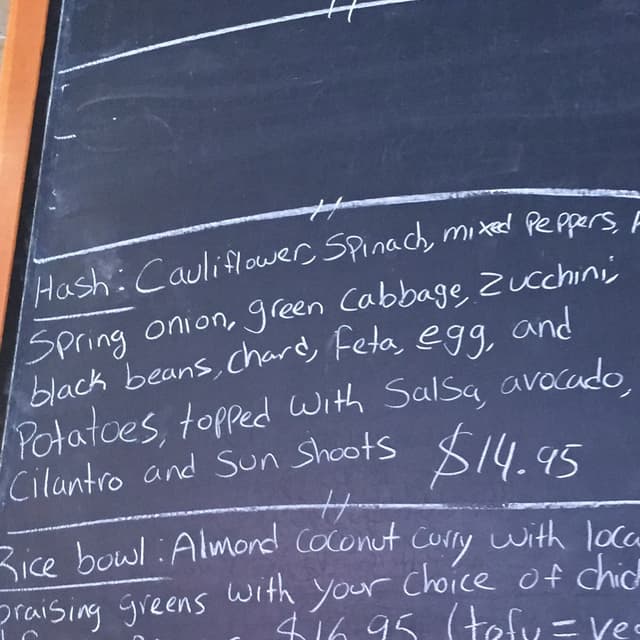 Hash: Cauliflower, Spinach, mixed Peppers,
Spring onion, green Cabbage, Zucchini,
black beans, chard, Feta, egg, and
Potatoes, topped with Salsa, avocado,
Cilantro and Sun Shoots $14.95
Rice bowl: Almond coconut curry with loca
braising greens with your choice of chic
$16.95 (tofu = ve